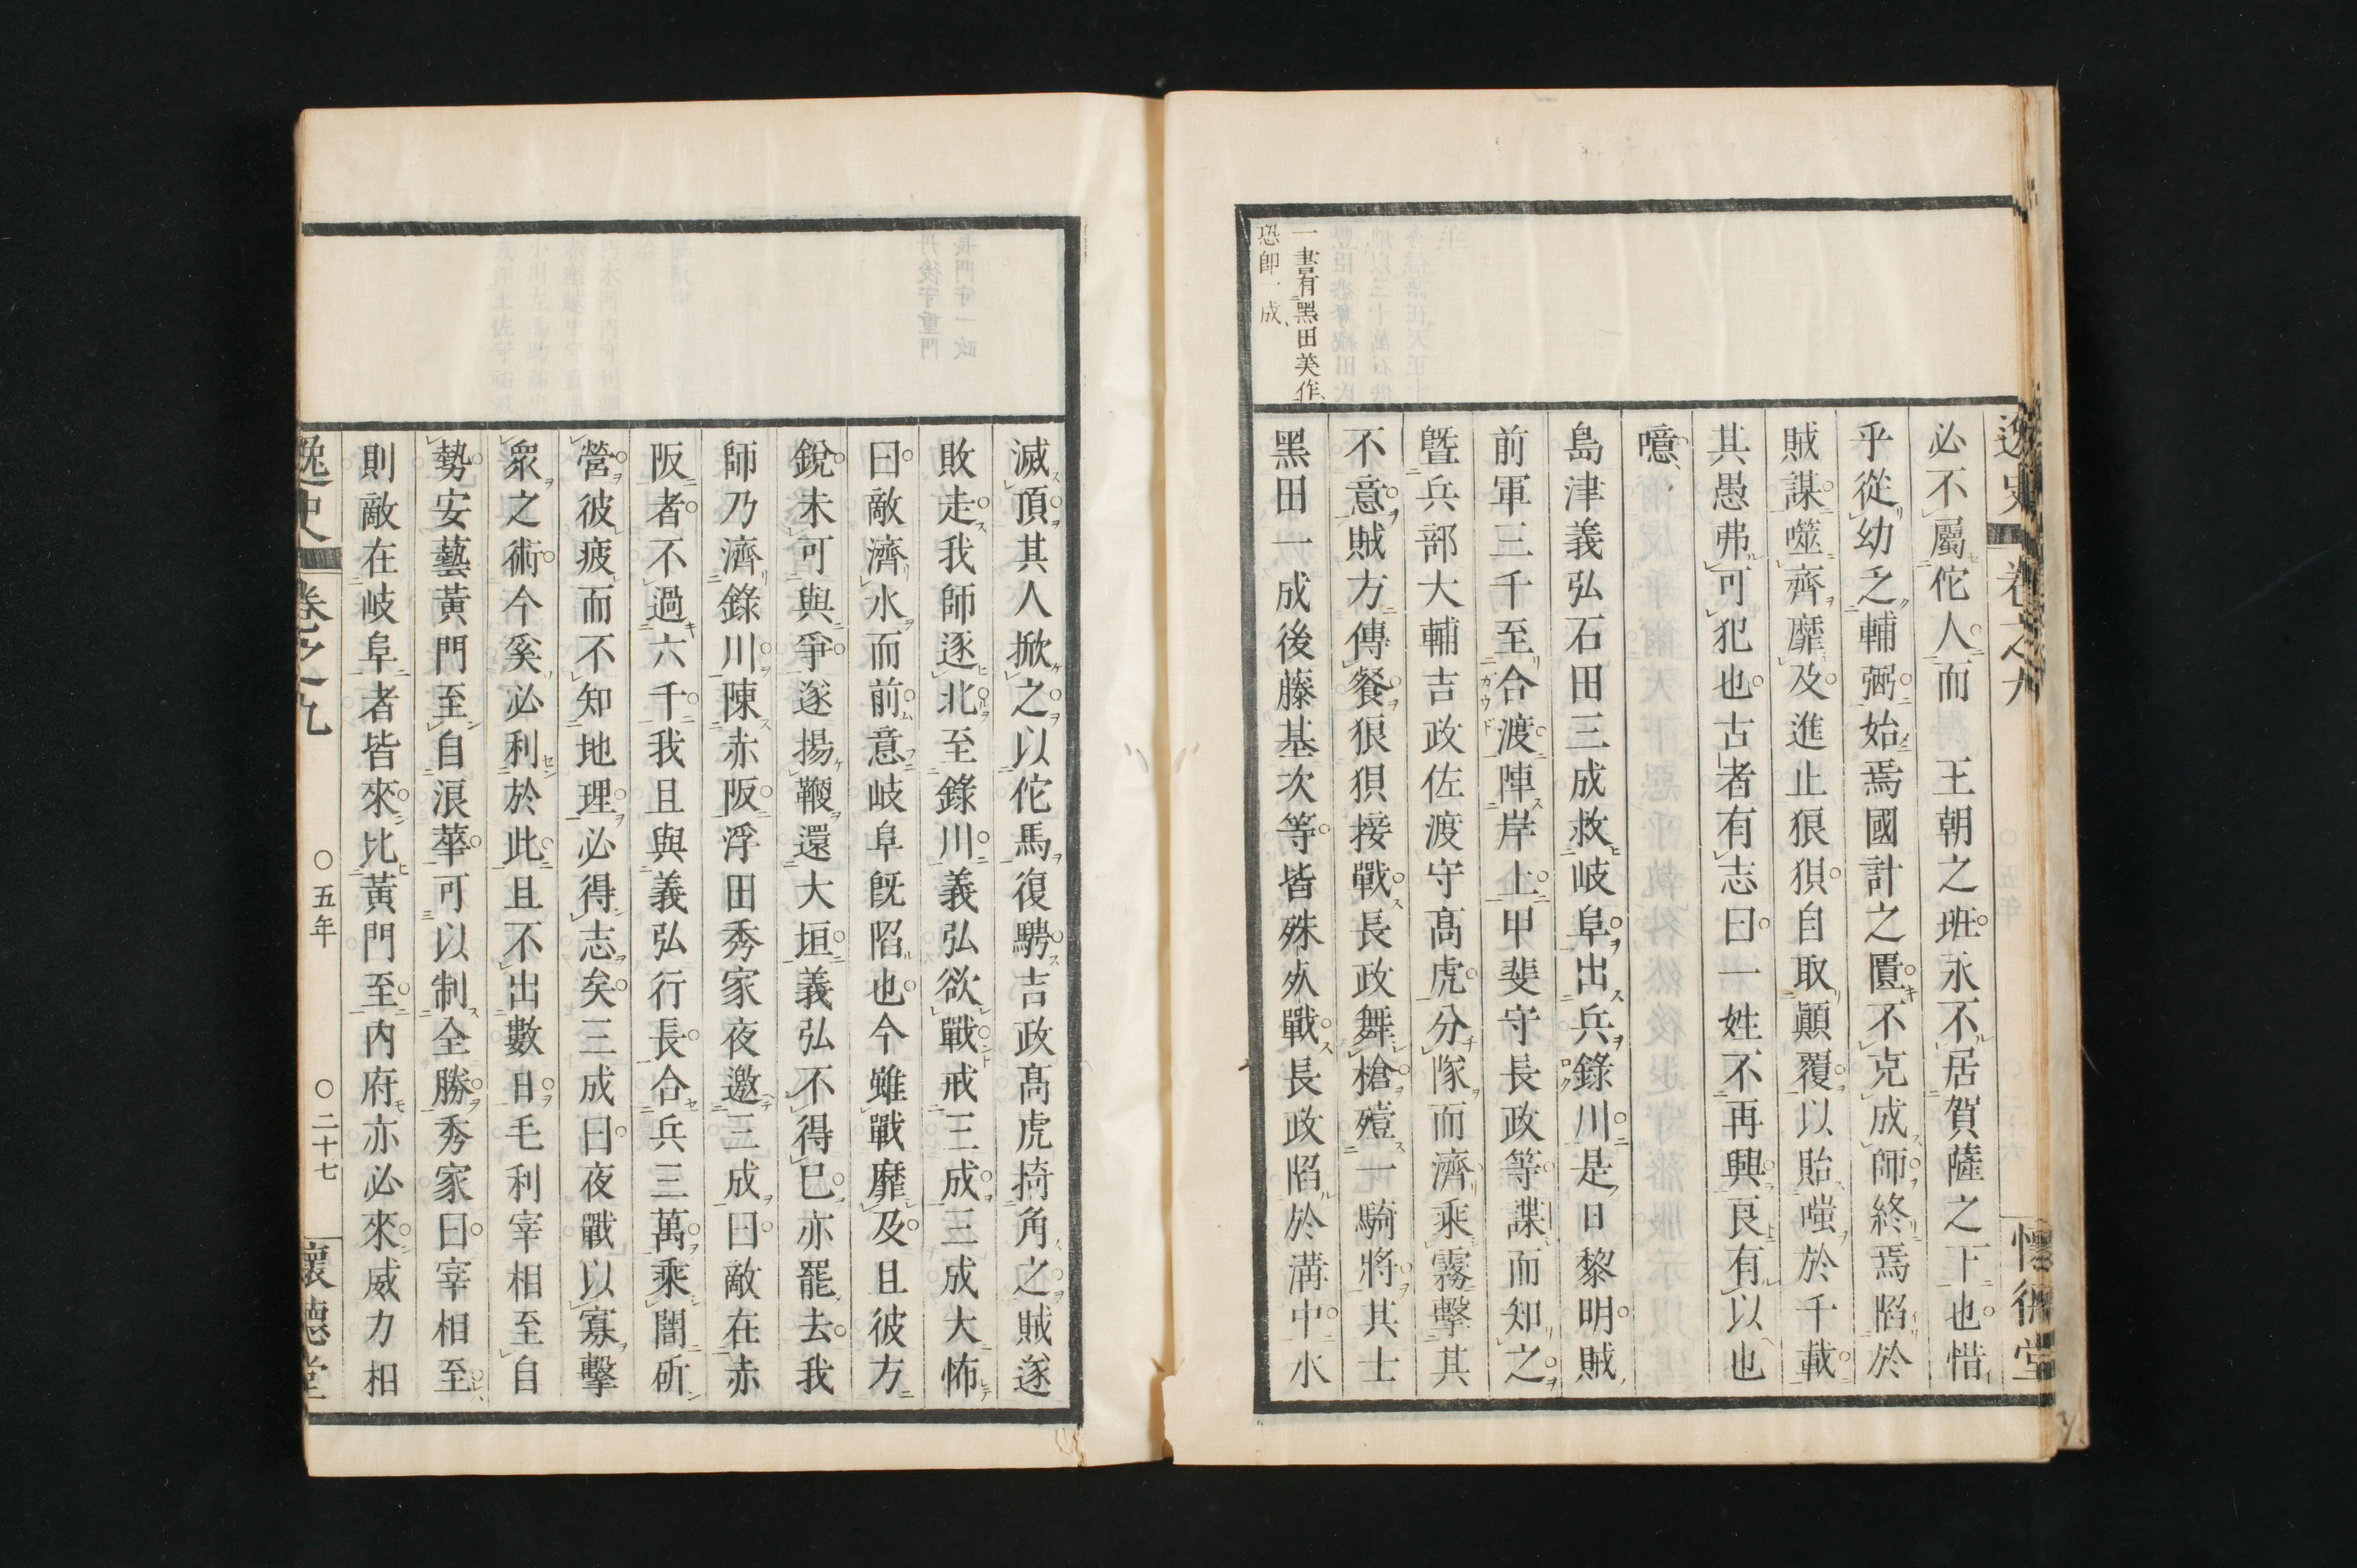 必不屬佗人而　王朝之班永不居賀薩之下也惜
乎從幼之輔弼始焉國計之匱不克成師終焉陷於
賊謀噬齊靡及進止狼狽自取顚覆以貽嗤於千載
其愚弗可犯也古者有志曰一姓不再興良有以也
噫
島津義弘石田三成救岐阜出兵錄川是日黎明賊
前軍三千至合渡陣岸上甲斐守長政等諜而知之
曁兵部大輔吉政佐渡守高虎分隊而濟乘霧擊其
不意賊方傳餐狼狽接戰長政舞槍殪一騎將其士
黑田一成後藤基次等皆殊死戰長政陷於溝中水
一書有黑田美作
恐卽一成
滅頂其人掀之以佗馬復騁吉政高虎掎角之賊遂
敗走我師逐北至錄川義弘欲戰戒三成三成大怖
曰敵濟水而前意岐阜旣陷也今雖戰靡及且彼方
銳未可與爭遂揚鞭還大垣義弘不得已亦罷去我
師乃濟錄川陳赤阪浮田秀家夜邀三成曰敵在赤
阪者不過六千我且與義弘行長合兵三萬乘闇斫
營彼疲而不知地理必得志矣三成曰夜戰以寡擊
衆之術今奚必利於此且不出數日毛利宰相至自
勢安藝黃門至自浪華可以制全勝秀家曰宰相至
則敵在岐阜者皆來比黃門至內府亦必來威力相
逸史　卷之九　○五年　○二十七　懷德堂